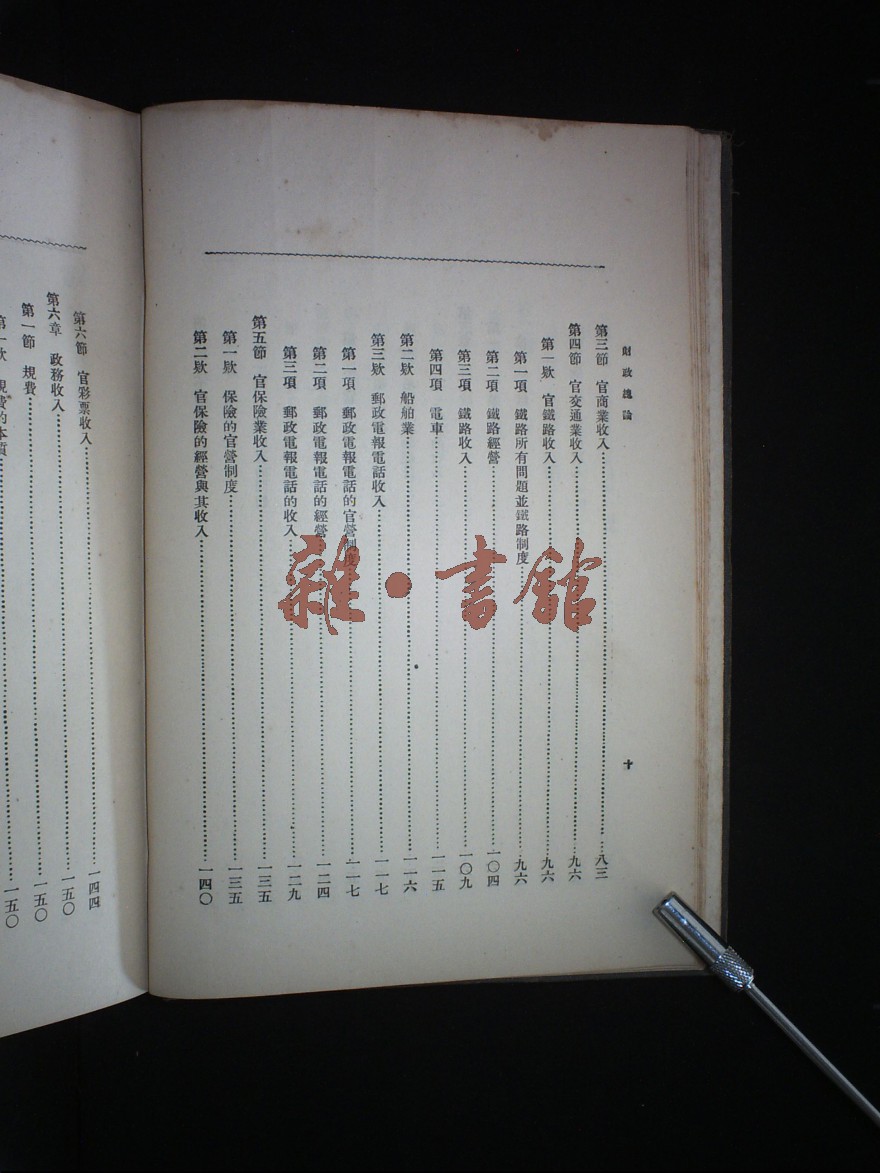 財政總論
十
第三節　官商業收入……八三
第四節　官交通業收入……九六
第一欵　官鐵路收入……九六
第一項　鐵路所有問題並鐵路制度……九六
第二項　鐵路經營……一〇四
第三項　鐵路收入……一〇九
第四項　電車……一一五
第二欵　船舶業……一一六
第三欵　郵政電報電話收入……一一七
第一項　郵政電報電話的官營制度……一一七
第二項　郵政電報電話的經營……一二四
第三項　郵政電報電話的收入……一二九
第五節　官保險業收入……一三五
第一欵　保險的官營制度……一三五
第二欵　官保險的經營與其收入……一四〇
第六節　官彩票收入……一四四
第六章　政務收入……一五〇
第一節　規費……一五〇
第一欵　規費的本質……一五〇
雜·書館